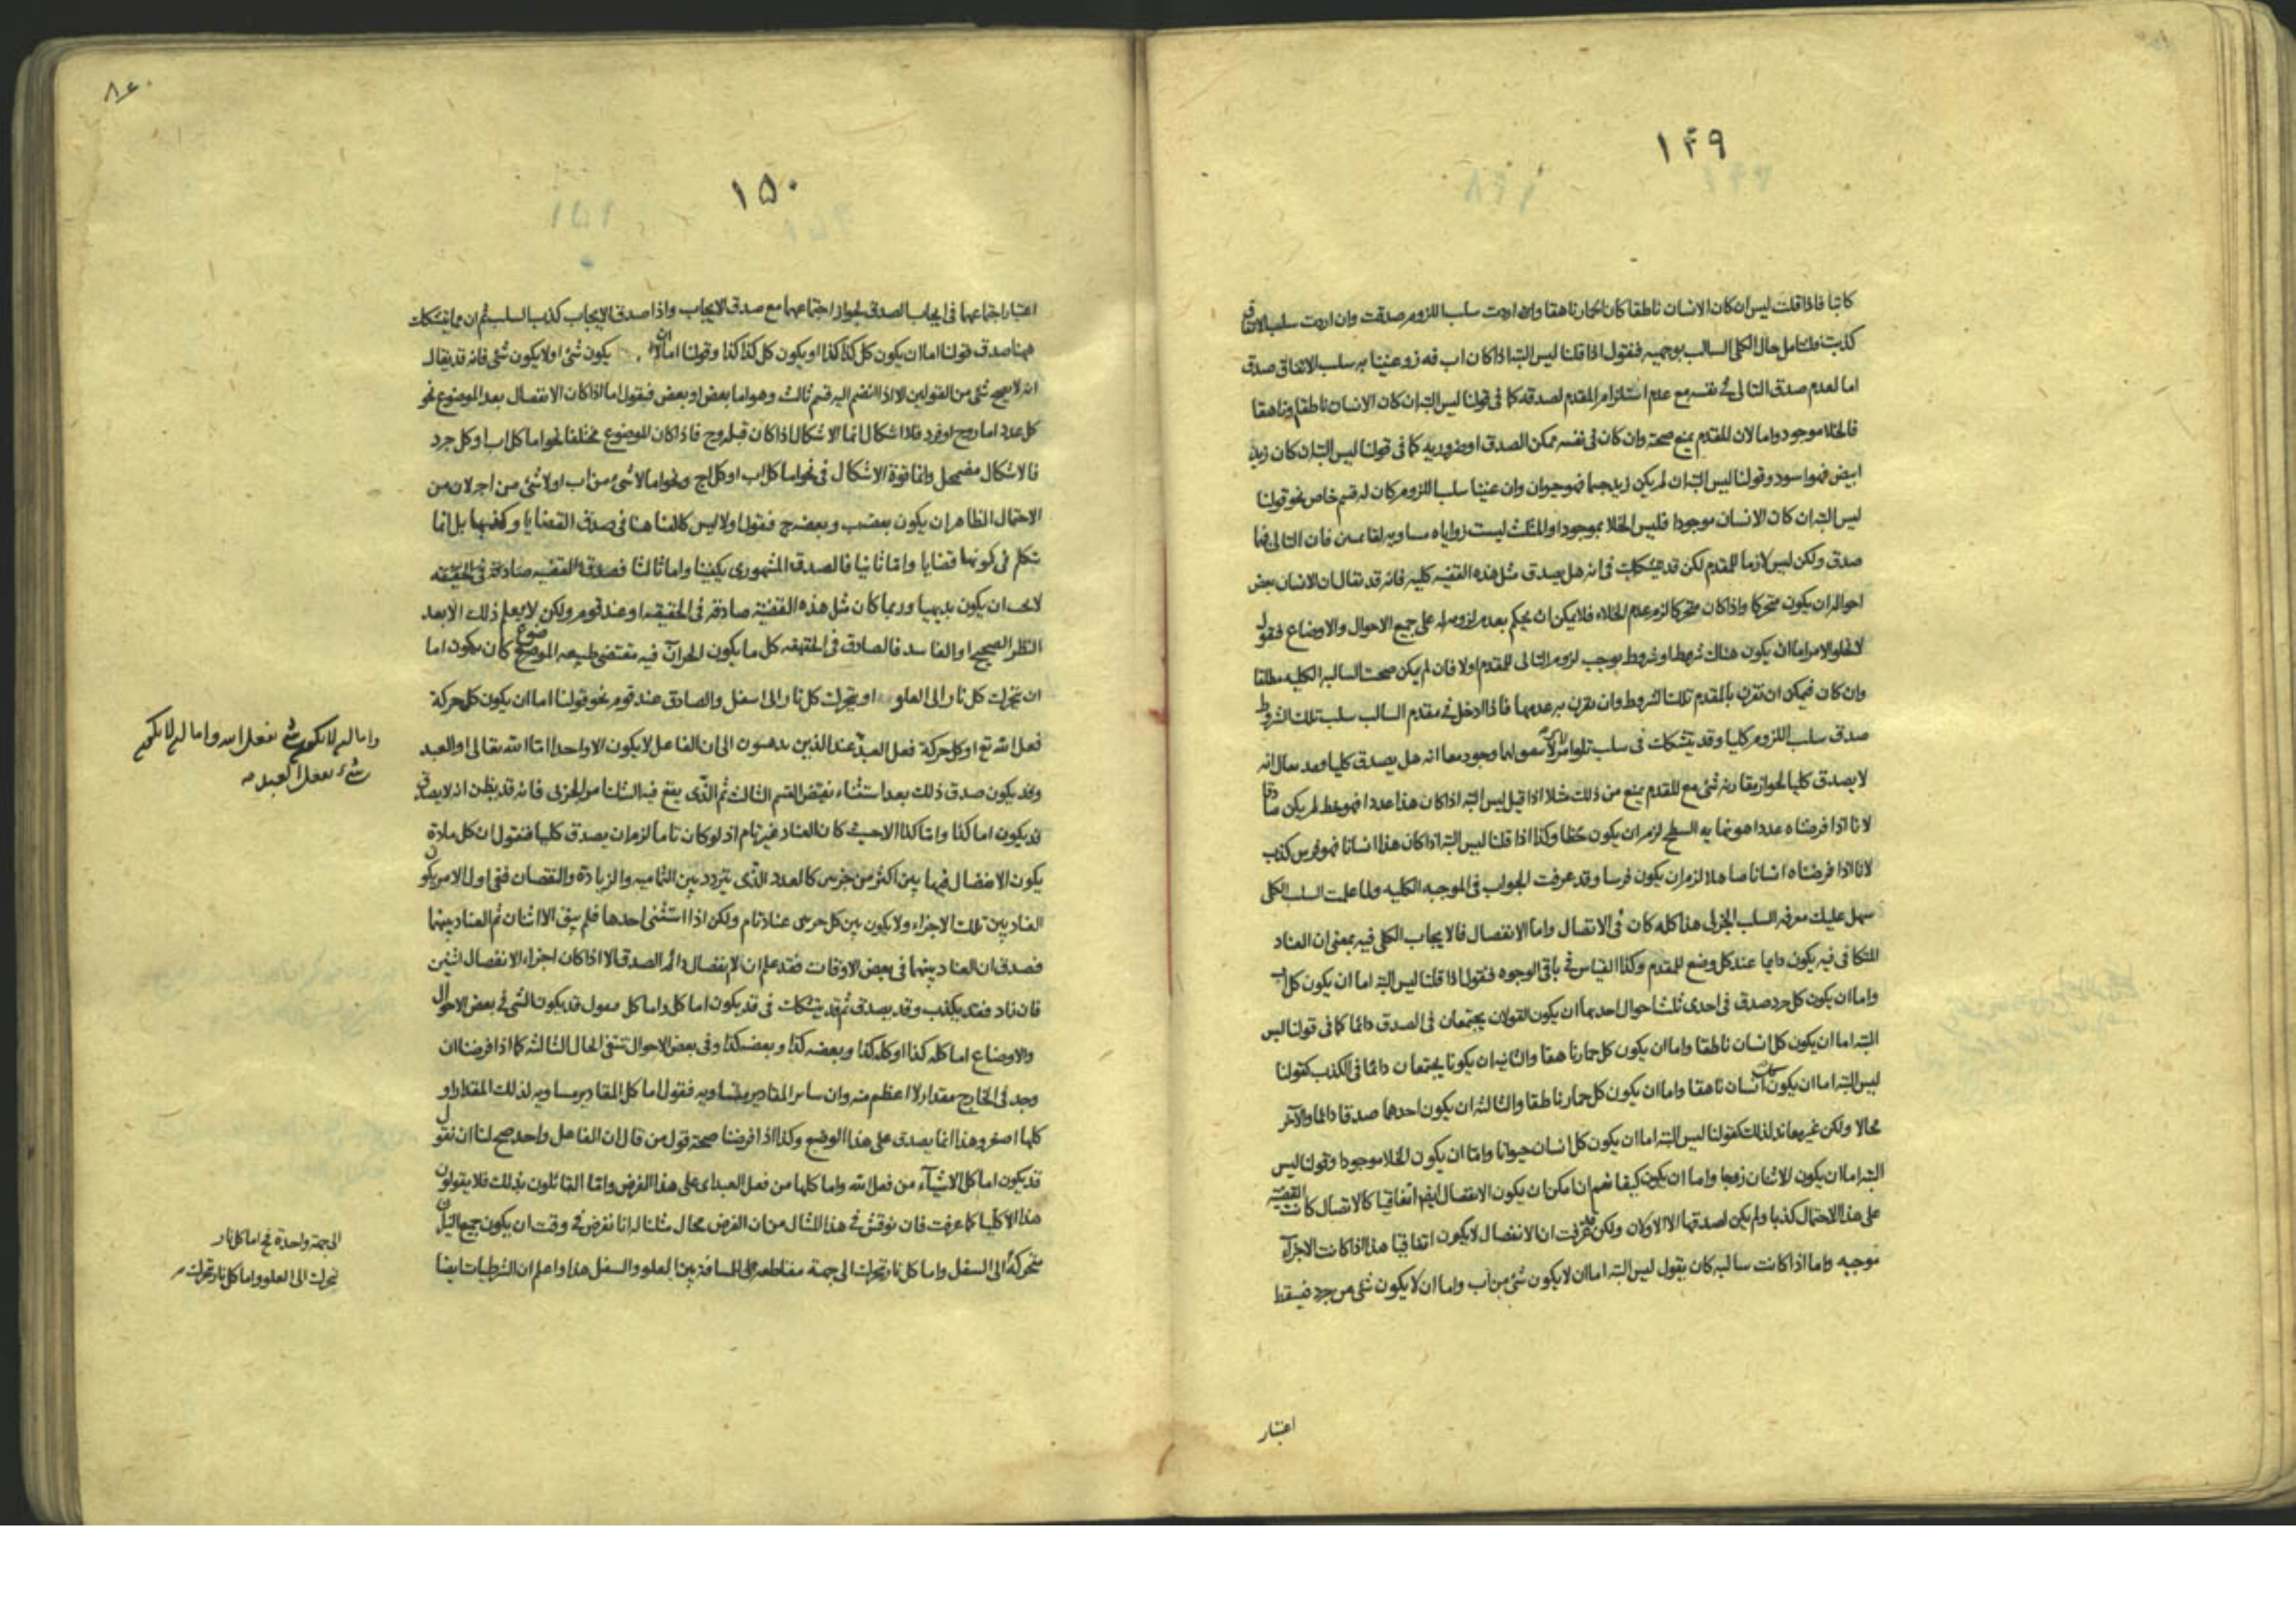 ١٤٩
كاتبا فاذا قلت ليس ان كان الانسان ناطقا كان الحمار ناهقا وان اردت سلب اللزوم صدقت وان اردت سلب الاتفاق
كذبت ولنتامل حال الكلى السالب بوجهيه فنقول اذا قلنا ليس البته اذا كان اب فه ز وعنينا به سلب الاتفاق صدق
اما لعدم صدق التالى فى نفسه مع عدم استلزام المقدم لصدقه كما فى قولنا ليس البته ان كان الانسان ناطقا
فالخلا موجود واما لان المقدم يمنع صحته وان كان فى نفسه ممكن الصدق او ضروريه كما فى قولنا ليس البته ان كان زيد
ابيض فهو اسود وقولنا ليس البته ان لم يكن زيد جسما فهو حيوان وان عنينا سلب اللزوم كان له قسم خاص نحو قولنا
ليس البته ان كان الانسان موجودا فليس الخلا بموجود او المثلث ليست زواياه مساويه لقائمتين فان التالى فيها
صدق ولكن ليس لازما للمقدم لكن قد يتشكك فى انه هل يصدق مثل هذه القضيه كليه فانه قد يقال ان الانسان بعض
احواله ان يكون متحركا واذا كان متحركا لزم عدم الخلاء فلا يمكن ان يحكم بعدم لزومه له على جميع الاحوال والاوضاع فنقول
لا يخلو الامر اما ان يكون هناك شرط او شروط يوجب لزوم التالى للمقدم او لا فان لم يكن صحت السالبه الكليه مطلقا
وان كان فيمكن ان تقرن بالمقدم تلك الشروط وان يقرن به عدمها فاذا ادخل فى مقدم السالب سلب تلك الشروط
صدق سلب اللزوم كليا وقد يتشكك فى سلب وجود معا انه هل يصدق كليا وقد يقال انه
لا يصدق كليا لجواز يقارنه شئ مع المقدم يمنع من ذلك مثلا اذا قيل ليس البته اذا كان هذا عددا فهو خط لم يكن صادقا
لانا اذا فرضناه عددا هو نهايه السطح لزم ان يكون خطا وكذا اذا قلنا ليس البته اذا كان هذا انسانا فهو فرس كذب
لانا اذا فرضناه انسانا صاهلا لزم ان يكون فرسا وقد عرفت الجواب فى الموجبه الكليه ولما علمت السلب الكلى
سهل عليك معرفه السلب الجزئى هذا كله كان فى الاتصال واما الانفصال فالايجاب الكلى فيه بمعنى ان العناد
المتكافى فيه يكون دايما عند كل وضع للمقدم وكذا القياس فى باقى الوجوه فنقول اذا قلنا ليس البته اما ان يكون كل اب
واما ان يكون كل جد صدق فى احدى ثلث احوال احديها ان يكون القولان يجتمعان فى الصدق دائما كما فى قولنا ليس
البته اما ان يكون كل انسان ناطقا واما ان يكون كل حمار ناهقا والثانيه ان يكونا يجتمعان دائما فى الكذب كقولنا
ليس البته اما ان يكون كل انسان ناهقا واما ان يكون كل حمار ناطقا والثالثه ان يكون احدهما صدقا دائما والآخر
محالا ولكن غير معاند لذلك كقولنا ليس البته اما ان يكون كل انسان حيوانا واما ان يكون الخلا موجودا وقولنا ليس
البته اما ان يكون الاثنان زوجا واما ان يكون كيفا نعم ان امكن ان يكون الانفصال ايضا اتفاقيا كالاتصال كانت القضية
على هذا الاحتمال كذبا ولم يكن لصدقها الا الاولان ولكن قد عرفت ان الانفصال لا يكون اتفاقيا هذا اذا كانت الاجزآء
موجبه واما اذا كانت سالبه كان يقول ليس البته اما ان لا يكون شئ من اب واما ان لا يكون شئ من جد فيسقط
اعتبار
٨٤٠
١٥٠
اعتبار اجتماعهما فى ايجاب الصدق لجواز اجتماعهما مع صدق الايجاب واذا صدق الايجاب كذب السلب ثم ان مما يتشكك
ههنا صدق قولنا اما ان يكون كل كذا كذا او يكون كل كذا كذا وقولنا اما ان لا يكون شئ او لا يكون شئ فانه قد يقال
انه لا يصح شئ من القولين الا اذا انضم اليه قسم ثالث وهو اما بعض او بعض فيقول اما اذا كان الانفصال بعد الموضوع نحو
كل عدد اما زوج او فرد فلا اشكال انما الاشكال اذا كان قبله وح فاذا كان الموضوع مختلفا نحو اما كل اب او كل جد
فالاشكال مضمحل وانما قوة الاشكال فى نحو اما كل اب او كل اج ونحو اما لا شئ من اب او لا شئ من اج لان من
الاحتمال الظاهر ان يكون بعض ب وبعض ج فنقول اولا ليس كلامنا هنا فى صدق القضايا وكذبها بل انما
نتكلم فى كونها قضايا واما ثانيا فالصدق المشهورى يكفينا واما ثالثا فصدق القضيه صادقة فى الحقيقه
لا يجب ان يكون بديهيا وربما كان مثل هذه القضيّة صادقة فى الحقيقه او عند قوم ولكن لا يعلم ذلك الا بعد
النظر الصحيح او الفاسد فالصادق فى الحقيقه كل ما يكون الجزآن فيه مقتضى طبيعه الموضوع كان يكون اما
ان تتحرك كل نار الى العلو او يتحرك كل نار الى اسفل والصادق عند قوم نحو قولنا اما ان يكون كل حركة
فعل الله تع او كل حركة فعل العبد عند الذين يذهبون الى ان الفاعل لا يكون الا واحدا اما الله تعالى او العبد
وقد يكون صدق ذلك بعد استثناء نقيض القسم الثالث ثم الذى يقع فيه الشك امر الجزئى فانه قد يظن انه لا يصدق
قد يكون اما كذا واما كذا الا حيث كان العناد غير تام اذ لو كان تاما لزم ان يصدق كليا فنقول ان كل مادة
يكون الانفصال فيها بين اكثر من جزئين كالعدد الذى يتردد بين التماميه والزيادة والنقصان ففى اول الامر يكون
العناد بين تلك الاجزاء ولا يكون بين كل جزئين عناد تام ولكن اذا استثنى احدها فلم يبق الا اثنان ثم العناد بينهما
فصدق ان العناد بينهما فى بعض الاوقات فقد علم ان لا ينفصال دائم الصدق الا اذا كان اجزاء الانفصال اثنين
فان زاد فقد يكذب وقد يصدق ثم قد يتشكك فى قد يكون اما كل واما كل فنقول قد يكون الشئ فى بعض الاحوال
والاوضاع اما كله كذا او كله كذا وبعضه كذا وبعضه كذا وفى بعض الاحوال تنتفى الحال الثالثه كما اذا فرضنا ان
وجد فى الخارج مقدار لا اعظم منه وان ساير المقادير متساويه فنقول اما كل المقادير مساويه لذلك المقدار او
كلها اصغر وهذا انما يصدق على هذا الوضع وكذا اذا فرضنا صحة قول من قال ان الفاعل واحد صح لنا ان نقول
قد يكون اما كل الاشيآء من فعل الله واما كلها من فعل العبد اى على هذا الفرض واما القائلون بذلك فلا يقولون
هذا الا كليا كما عرفت فان نوقش فى هذا المثال من ان الفرض محال مثلنا له انا نفرض فى وقت ان يكون جميع النيران
متحركة الى السفل واما كل نار تحركت الى جهة مقاطعه الى المسافة بين العلو والسفل هذا واعلم ان الشرطيات ايضا
واما ان لا يكون شئ بفعل الله واما ان لا يكون
شئ بفعل العبد صه
الى جهة واحدة نح اما كل نار
تحركت الى العلو واما كل نار تحركت